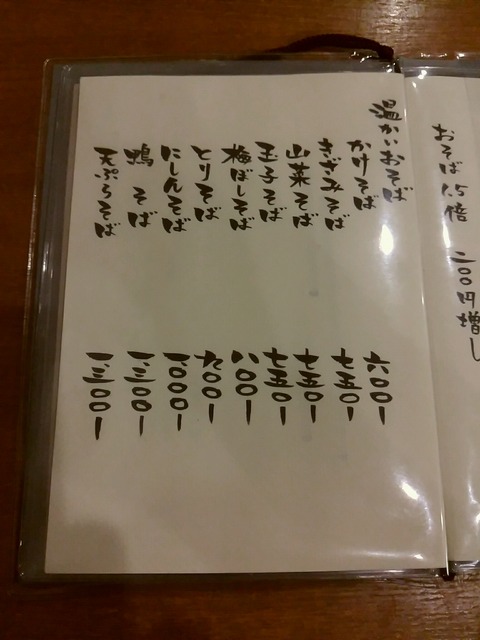 おそば 1.5倍 二〇〇円増し
温かいおそば
かけそば 六〇〇ー
きざみそば 七五〇ー
山菜そば 七五〇ー
玉子そば 七五〇ー
梅ぼしそば 八〇〇ー
とりそば 九〇〇ー
にしんそば 一、〇〇〇ー
鴨そば 一、三〇〇ー
天ぷらそば 一、三〇〇ー